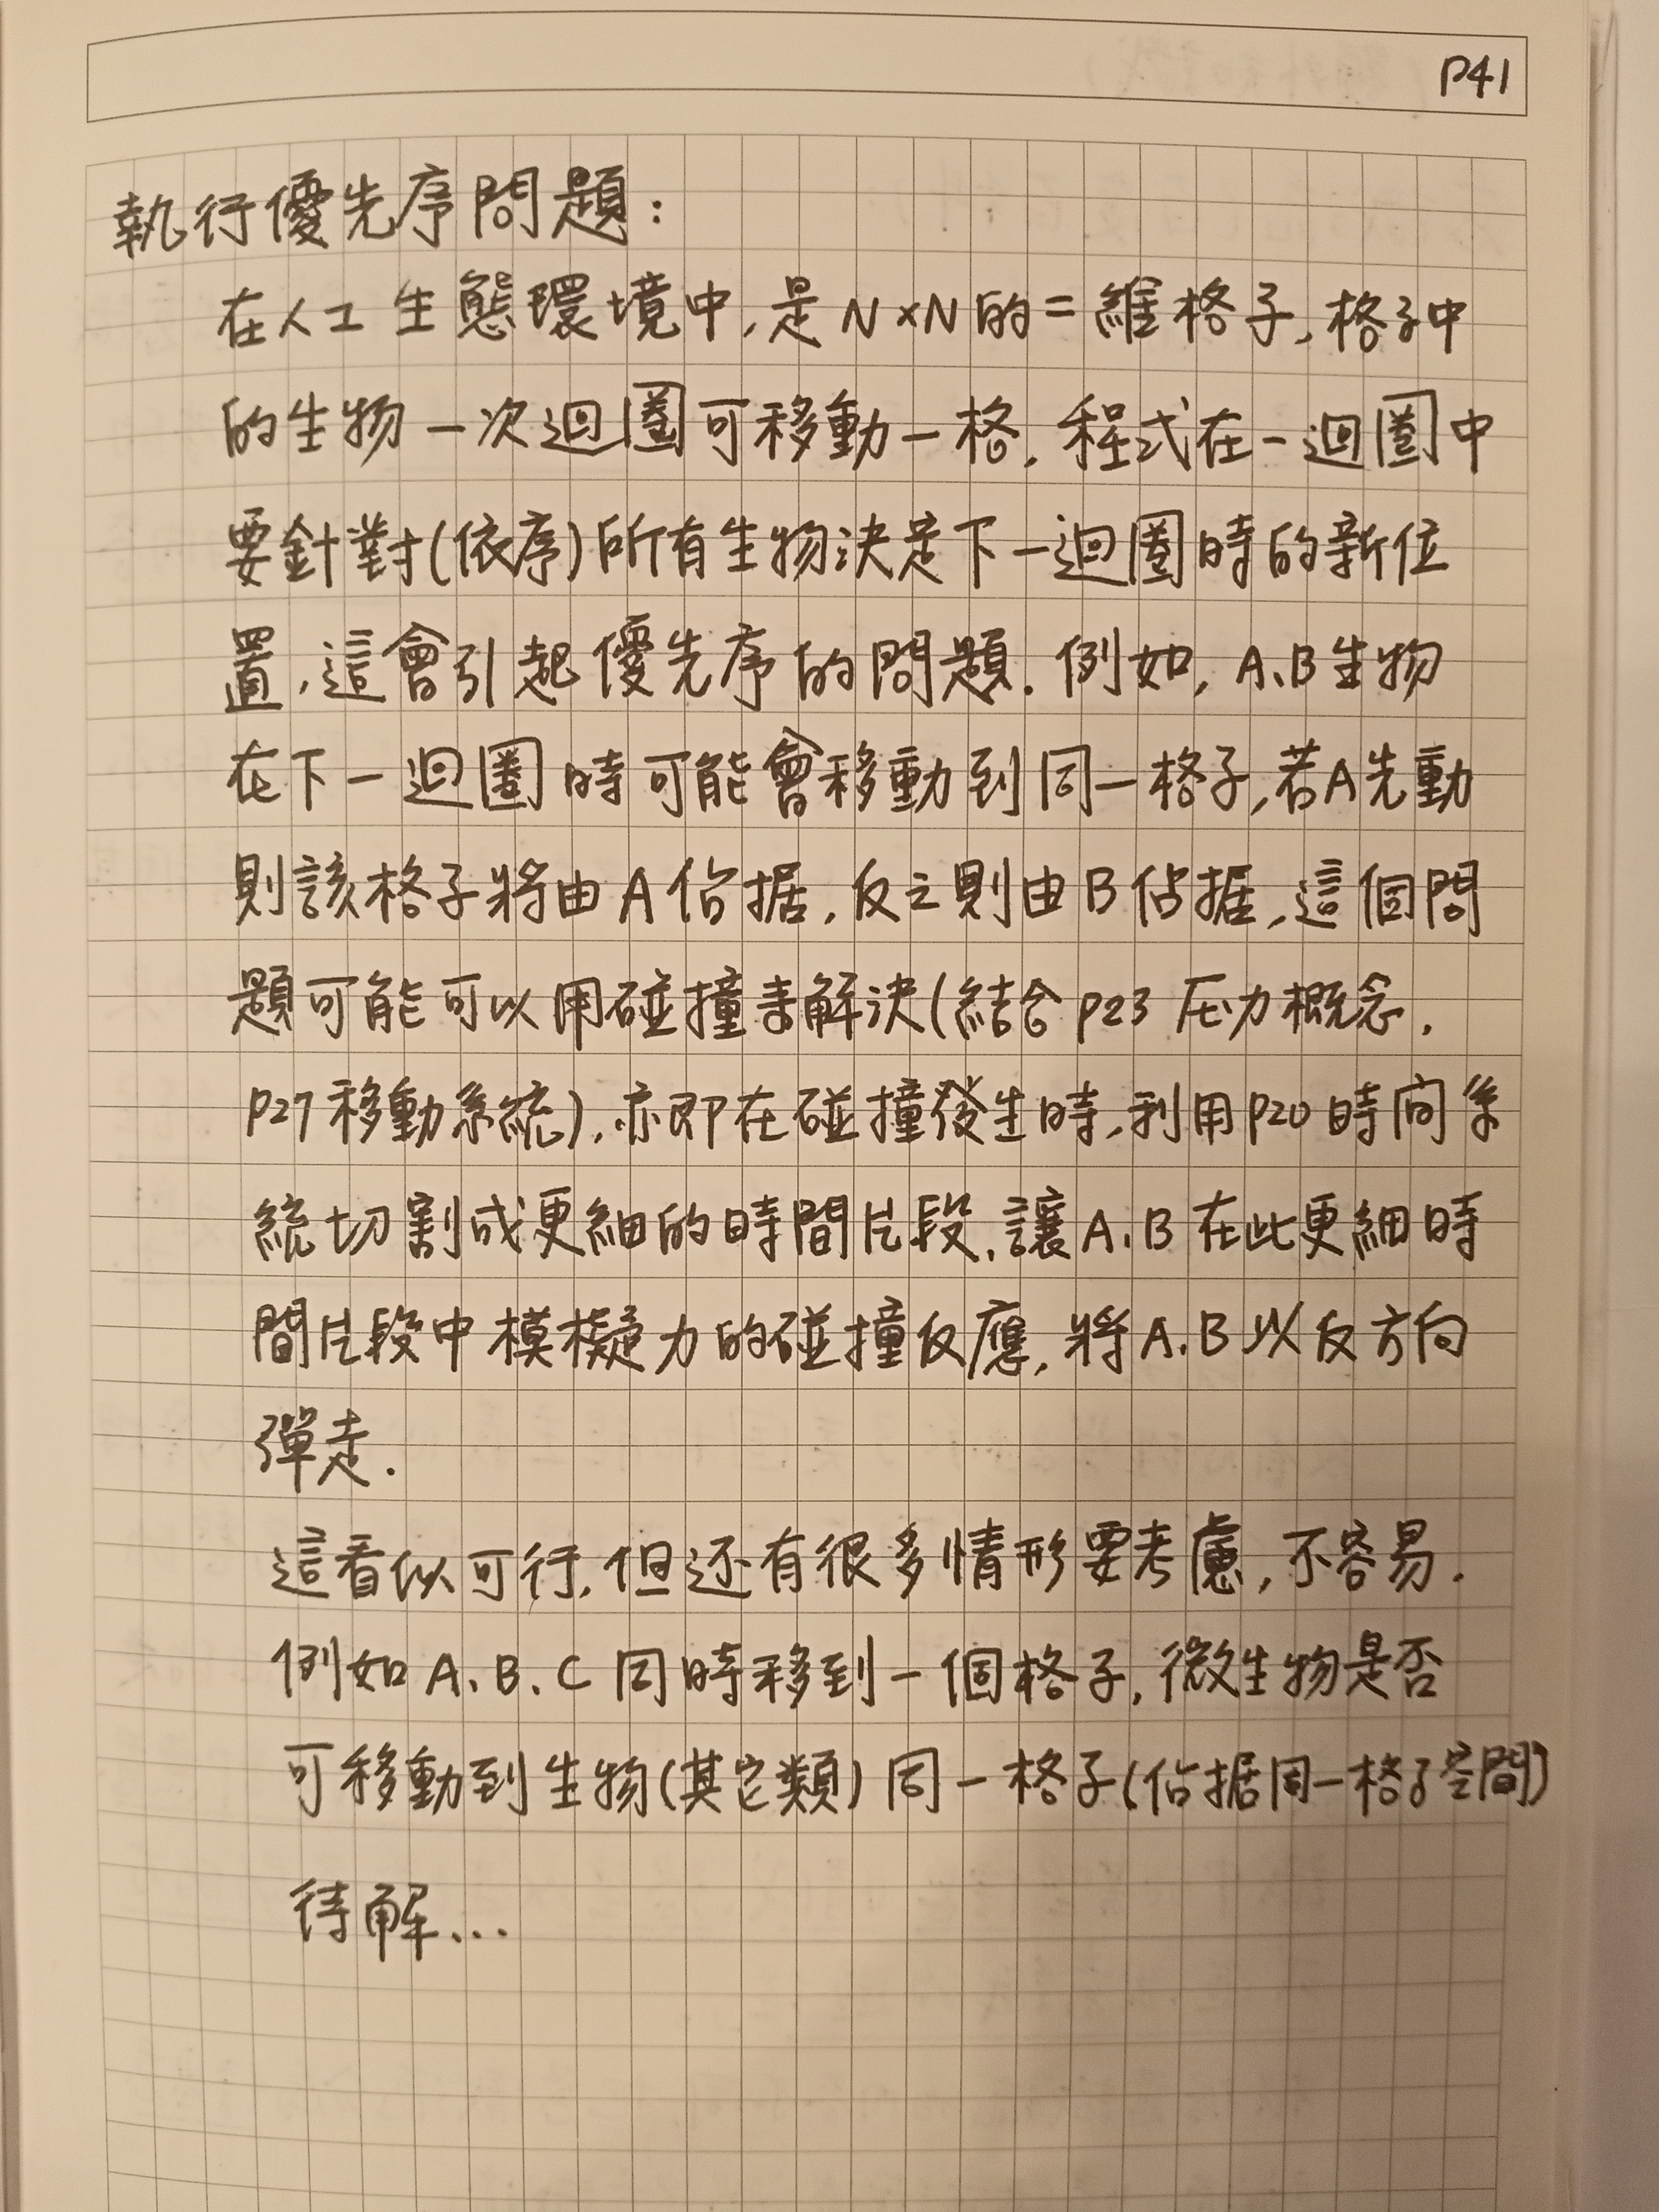 P41
執行優先序問題:
在人工生態環境中,是N×N的二維格子,格子中
的生物一次迴圈可移動一格,程式在一迴圈中
要針對(依序)所有生物決定下一迴圈時的新位
置,這會引起優先序的問題.例如,A、B生物
在下一迴圈時可能會移動到同一格子,若A先動
則該格子將由A佔据,反之則由B佔据,這個問
題可能可以用碰撞來解決(結合P23压力概念,
P27移動系統),亦即在碰撞發生時,利用P20時间系
統切割成更細的時間片段,讓A、B在此更細時
間片段中模擬力的碰撞反應,將A、B以反方向
彈走.
這看似可行,但还有很多情形要考慮,不容易.
例如A、B、C同時移到一個格子,微生物是否
可移動到生物(其它類)同一格子(佔据同一格子空間)
待解...